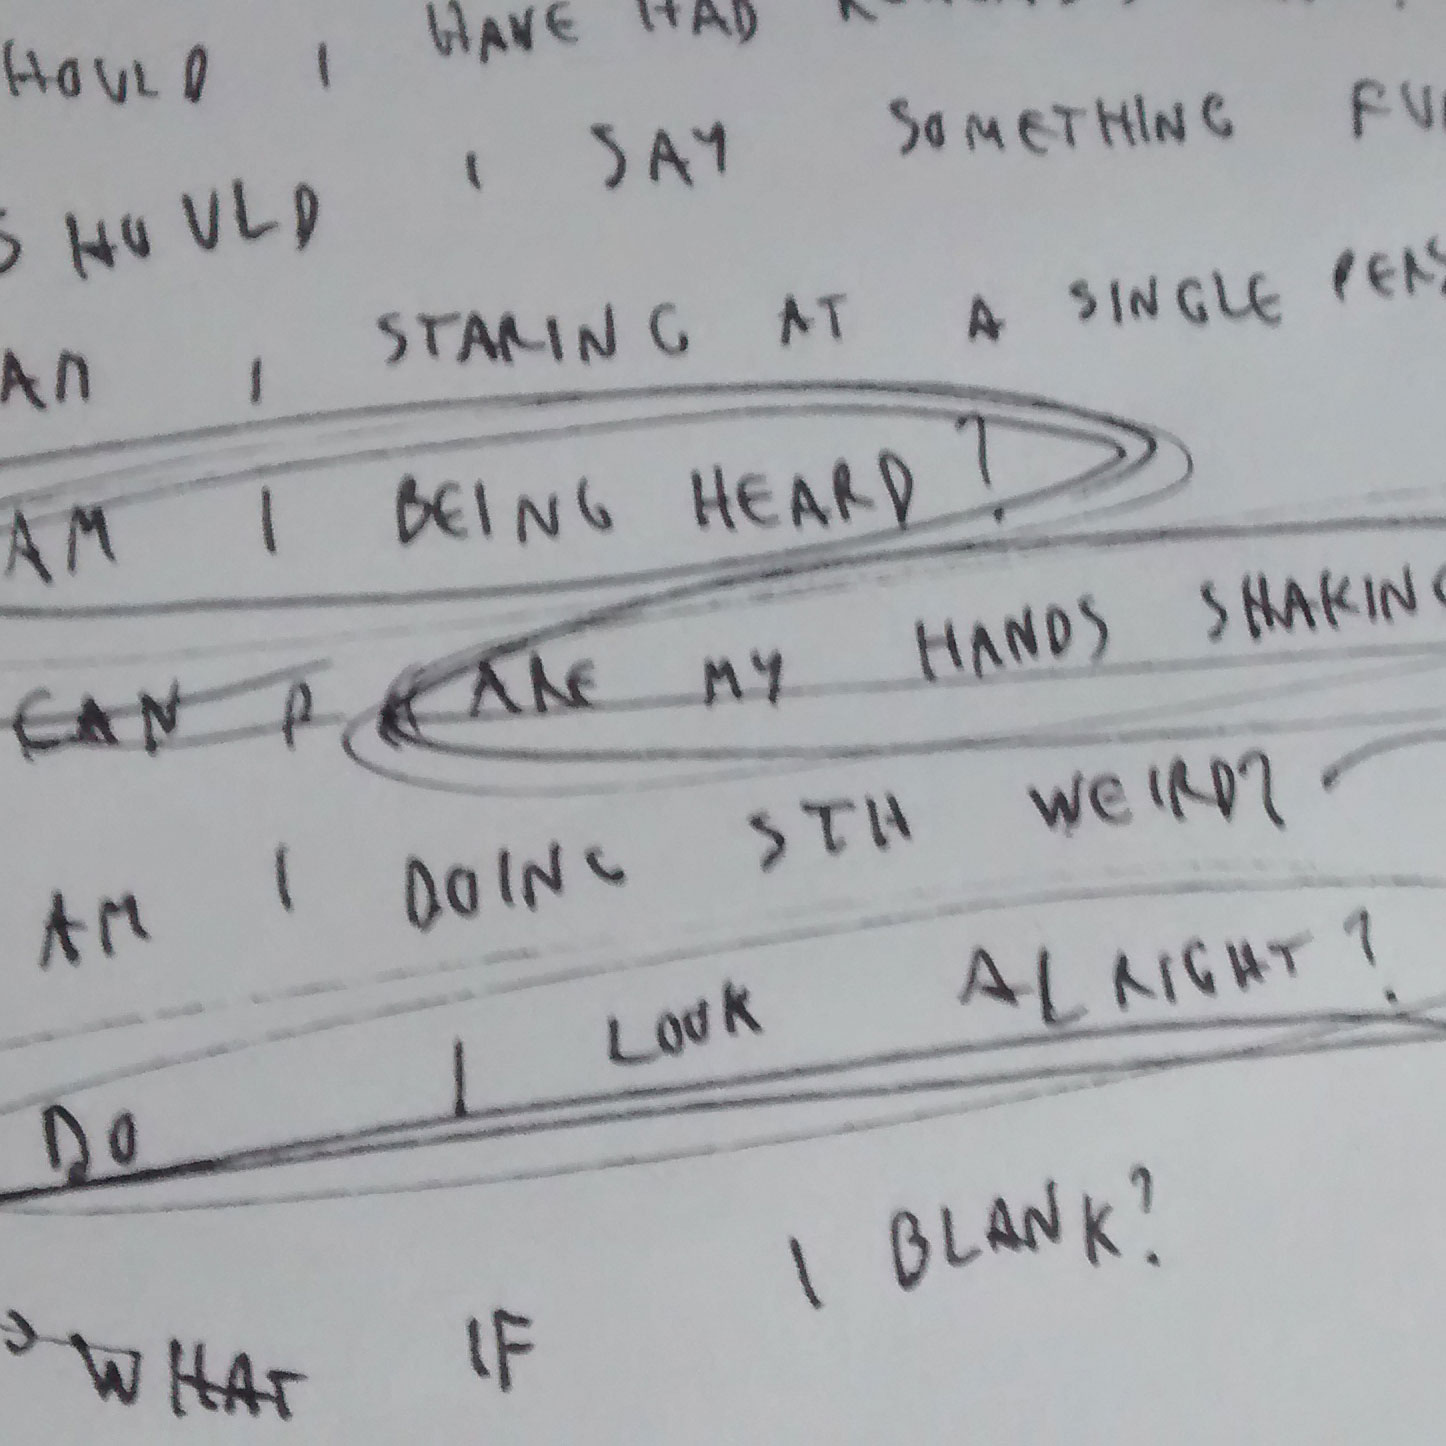 SHOULD I HAVE HAD
SHOULD I SAY SOMETHING
AM I STARING AT A SINGLE
AM I BEING HEARD?
CAN ARE MY HANDS SHAKING
AM I DOING STH WEIRD?
DO I LOOK ALRIGHT?
WHAT IF I BLANK?